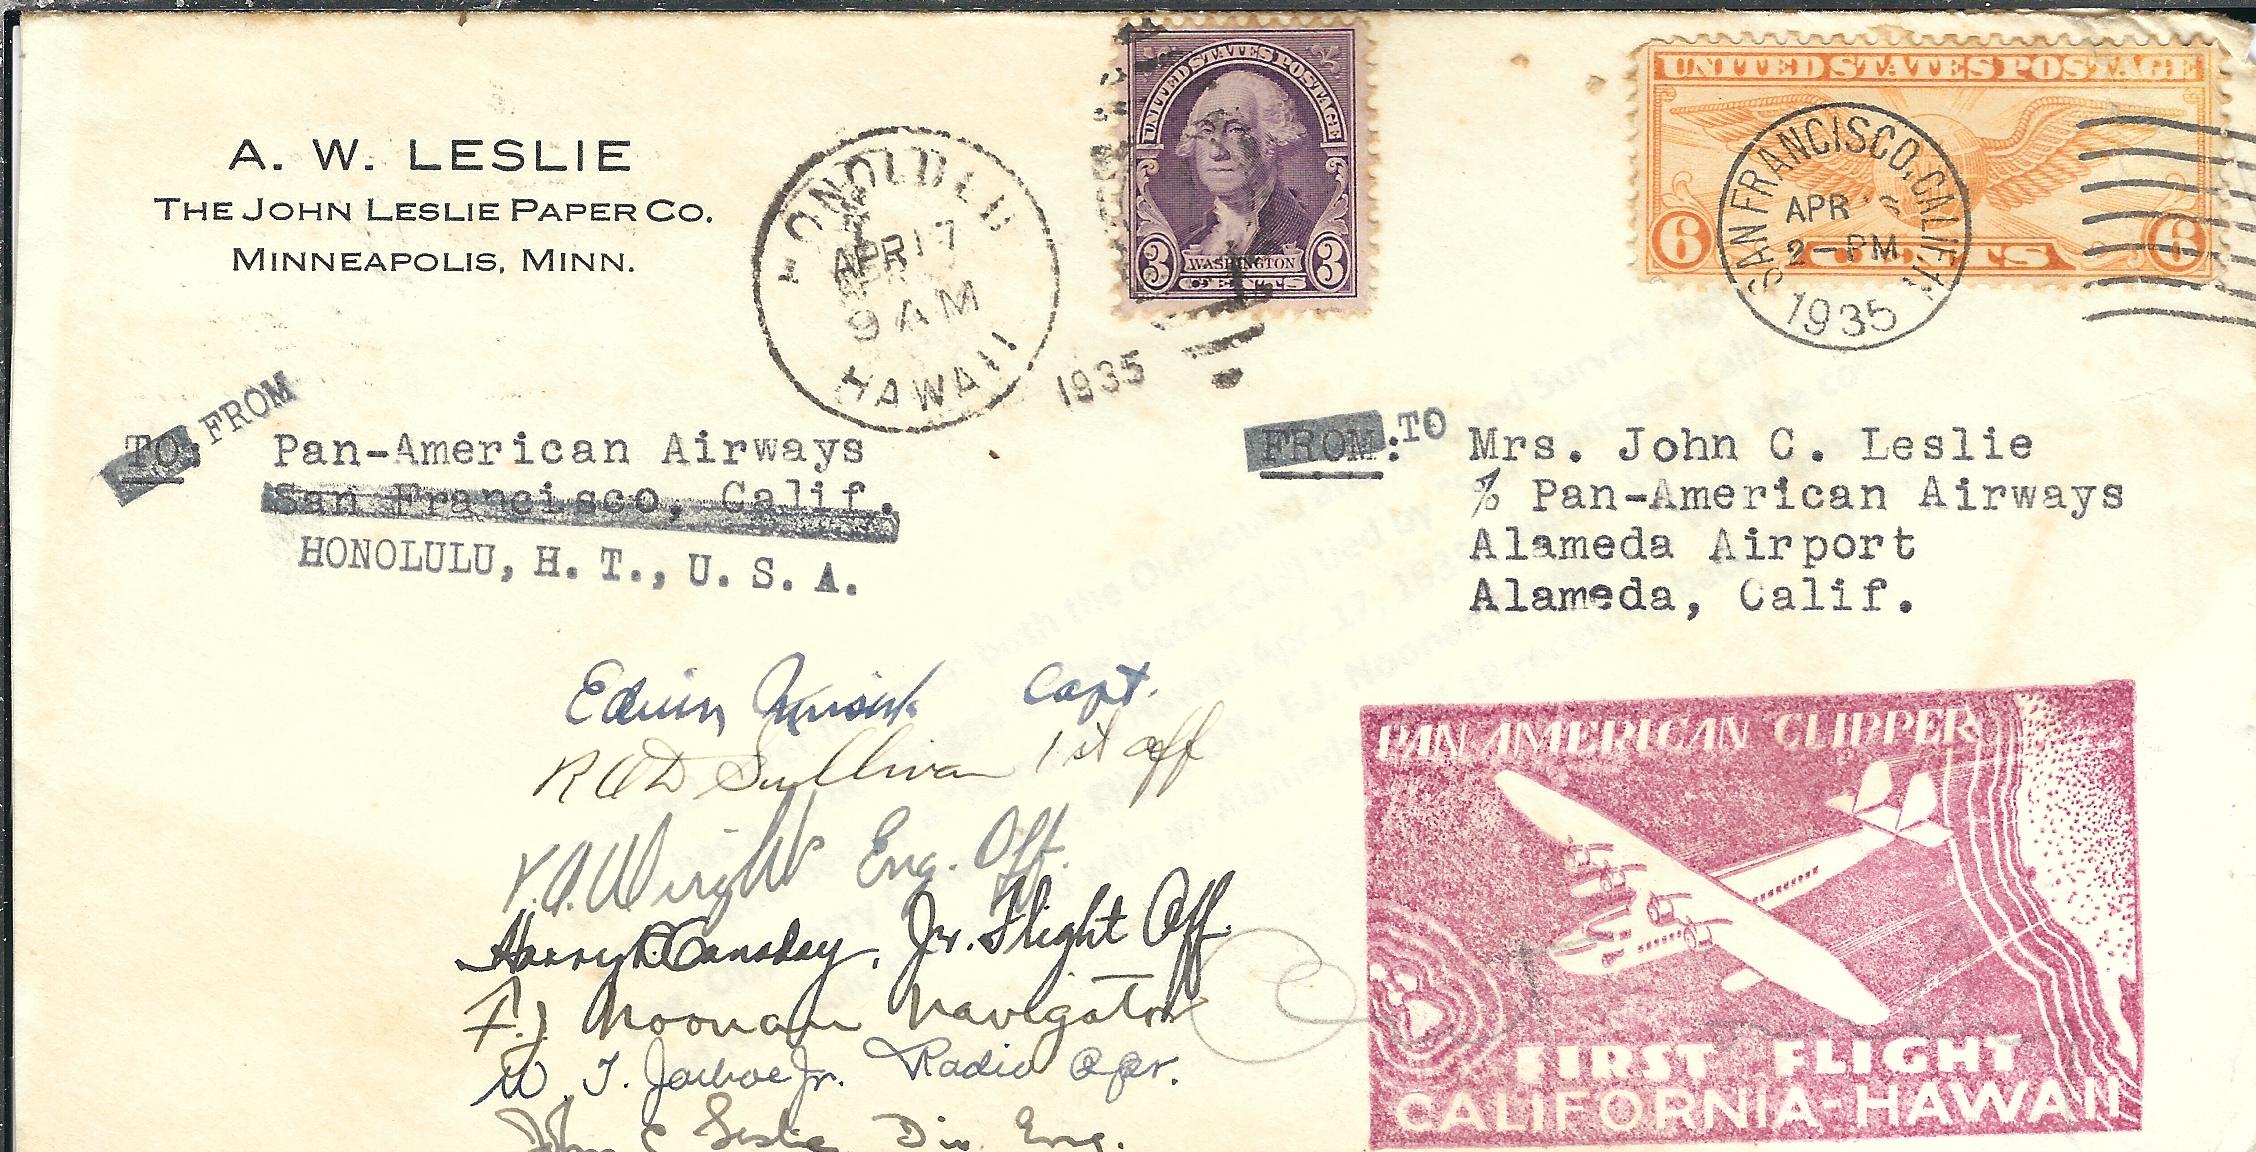 A. W. LESLIE
THE JOHN LESLIE PAPER CO.
MINNEAPOLIS, MINN.
HONOLULU
APR 17
9 AM
HAWAII
1935
UNITED STATES POSTAGE
3 WASHINGTON 3
CENTS
UNITED STATES POSTAGE
6 CENTS 6
SAN FRANCISCO, CALIF.
APR
2-PM
1935
TO: FROM
Pan-American Airways
San Francisco, Calif.
HONOLULU, H. T., U. S. A.
FROM: TO
Mrs. John C. Leslie
% Pan-American Airways
Alameda Airport
Alameda, Calif.
Edwin Musick Capt.
R O D Sullivan 1st off
V. A. Wright Eng. Off.
Harry R Canaday, Jr. Flight Off.
F. J. Noonan Navigator
W. T. Jarboe Jr. Radio Opr.
John C Leslie Div. Eng.
PAN AMERICAN CLIPPER
FIRST FLIGHT
CALIFORNIA-HAWAII